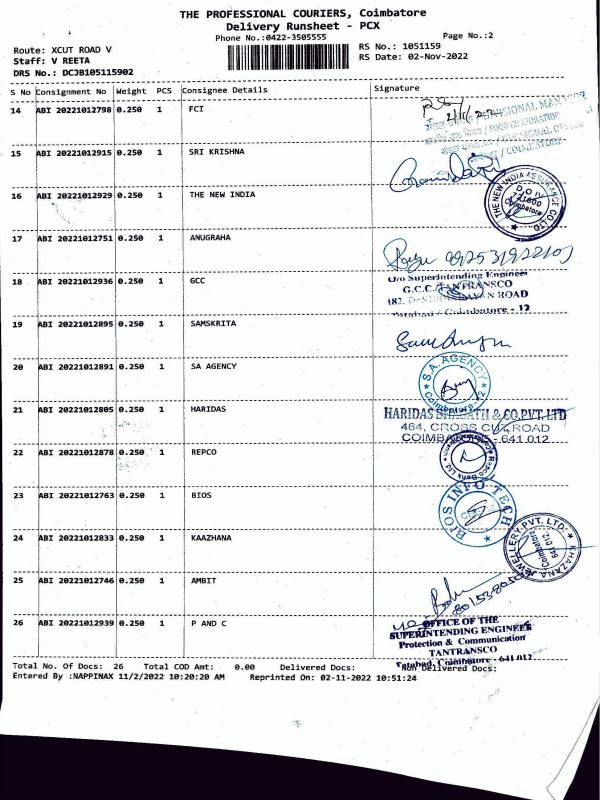 THE PROFESSIONAL COURIERS, Coimbatore
Delivery Runsheet - PCX
Phone No.:0422-3505555
Page No.:2
Route: XCUT ROAD V
RS No.: 1051159
Staff: V REETA
RS Date: 02-Nov-2022
DRS No.: DCJB105115902
S No Consignment No Weight PCS Consignee Details Signature
14 ABI 20221012798 0.250 1 FCI
15 ABI 20221012915 0.250 1 SRI KRISHNA
16 ABI 20221012929 0.250 1 THE NEW INDIA
THE NEW INDIA ASSURANCE CO LTD
Coimbatore
17 ABI 20221012751 0.250 1 ANUGRAHA
18 ABI 20221012936 0.250 1 GCC
O/o Superintending Engineer
G.C.C. TANTRANSCO
ROAD
Coimbatore - 12
19 ABI 20221012895 0.250 1 SAMSKRITA
20 ABI 20221012891 0.250 1 SA AGENCY
S.A. AGENCY
Coimbatore-12
21 ABI 20221012805 0.250 1 HARIDAS
HARIDAS BHAGATH & CO.PVT.LTD
464, CROSS CUT ROAD
COIMBATORE - 641 012
22 ABI 20221012878 0.250 1 REPCO
23 ABI 20221012763 0.250 1 BIOS
BIOS INFO TECH
24 ABI 20221012833 0.250 1 KAAZHANA
KHAZANA JEWELLERY PVT. LTD.
Coimbatore
641 012
25 ABI 20221012746 0.250 1 AMBIT
26 ABI 20221012939 0.250 1 P AND C
OFFICE OF THE
SUPERINTENDING ENGINEER
Protection & Communication
TANTRANSCO
Tatabad, Coimbatore - 641 012
Total No. Of Docs: 26 Total COD Amt: 0.00 Delivered Docs: Non Delivered Docs:
Entered By :NAPPINAX 11/2/2022 10:20:20 AM Reprinted On: 02-11-2022 10:51:24